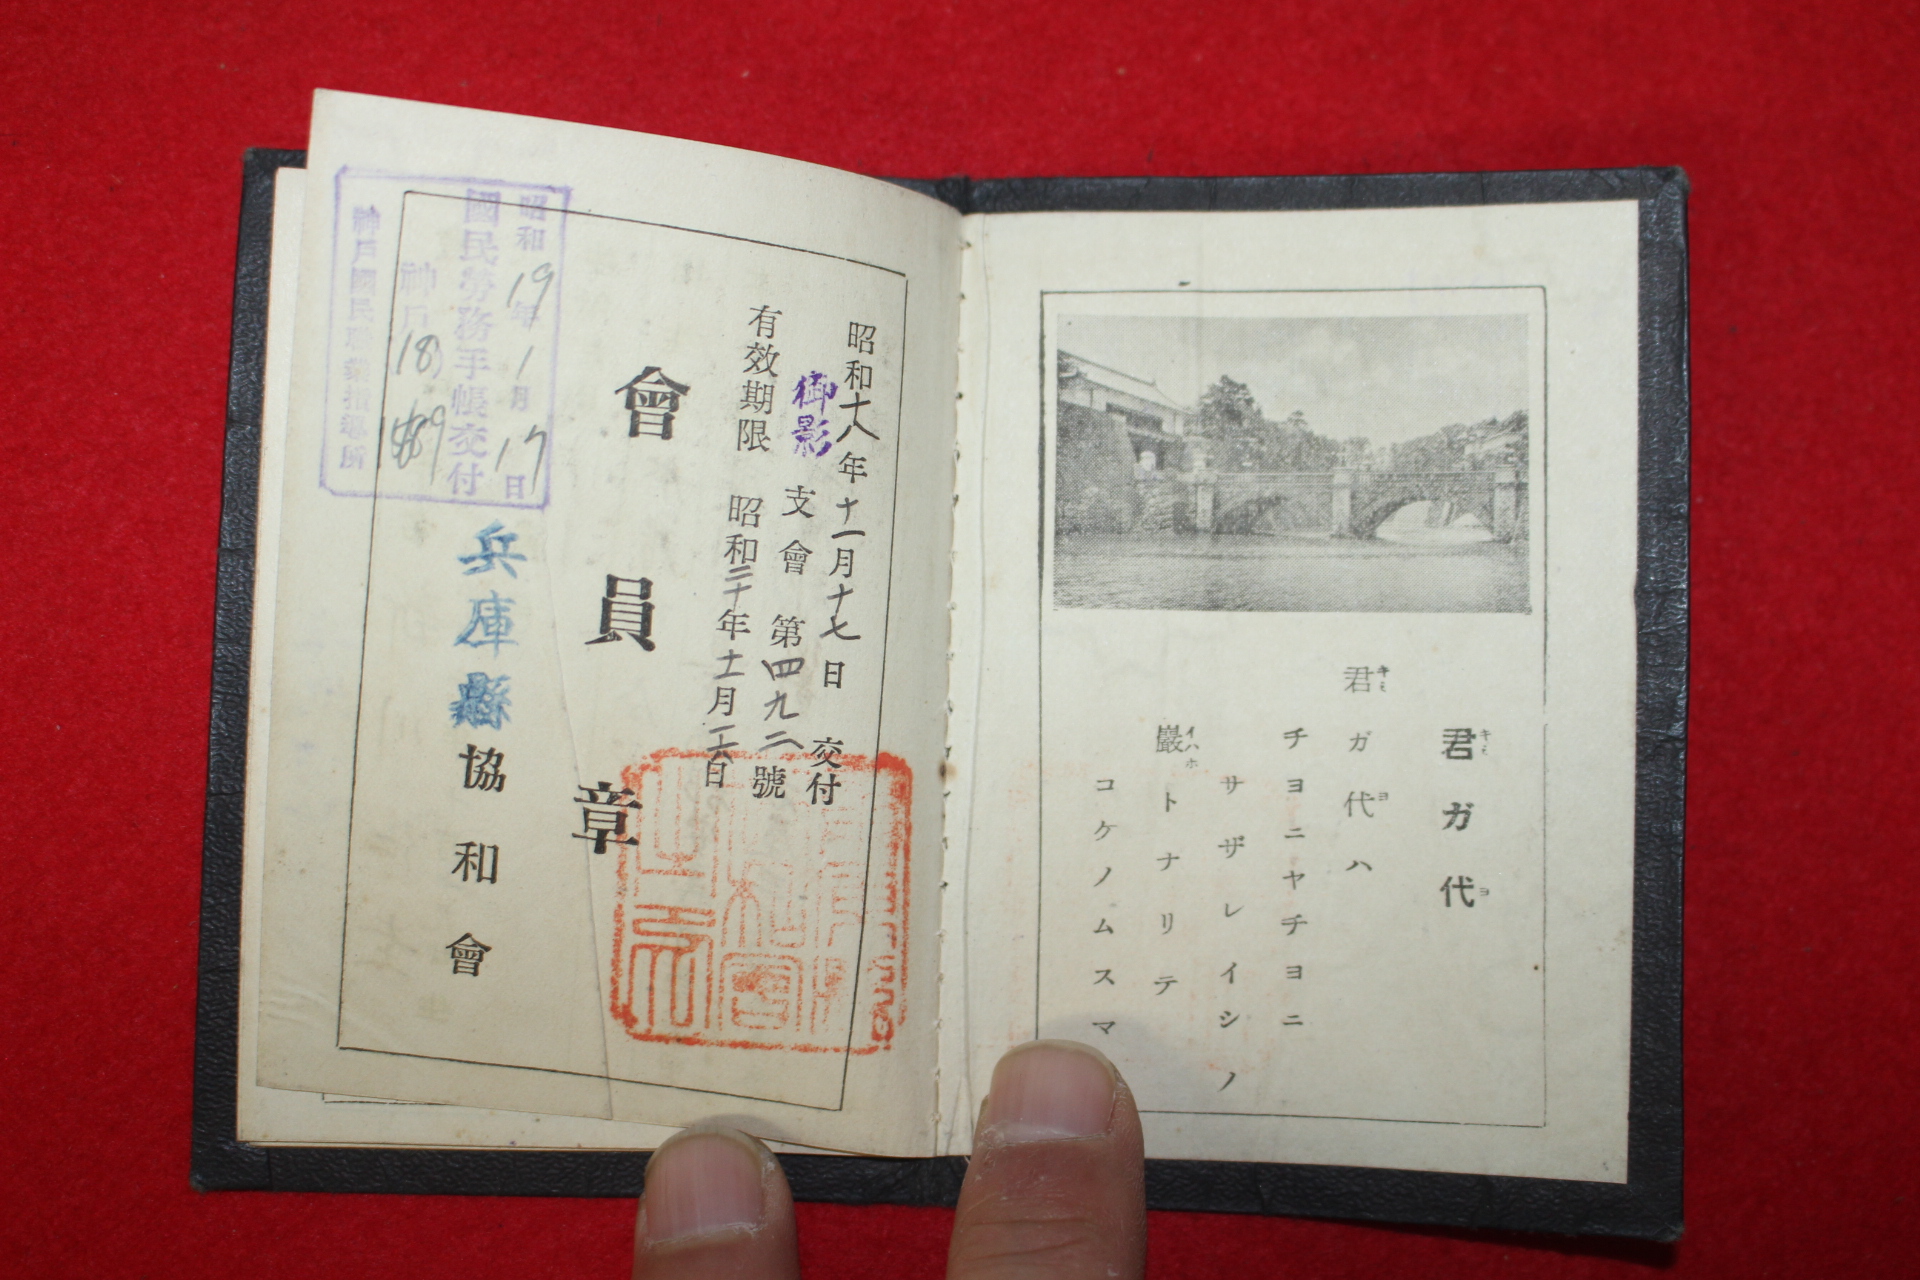 君ガ代
キミ ヨ
君ガ代ハ
キミ ヨ
チヨニヤチヨニ
サザレイシノ
巖トナリテ
イハホ
コケノムスマ
昭和十八年十一月十七日 交付
御影支會 第四九二號
有效期限 昭和二十年十一月
會員章
兵庫縣協和會
昭和19年1月17日
國民勞務手帳交付
神戸
神戸國民職業指導所